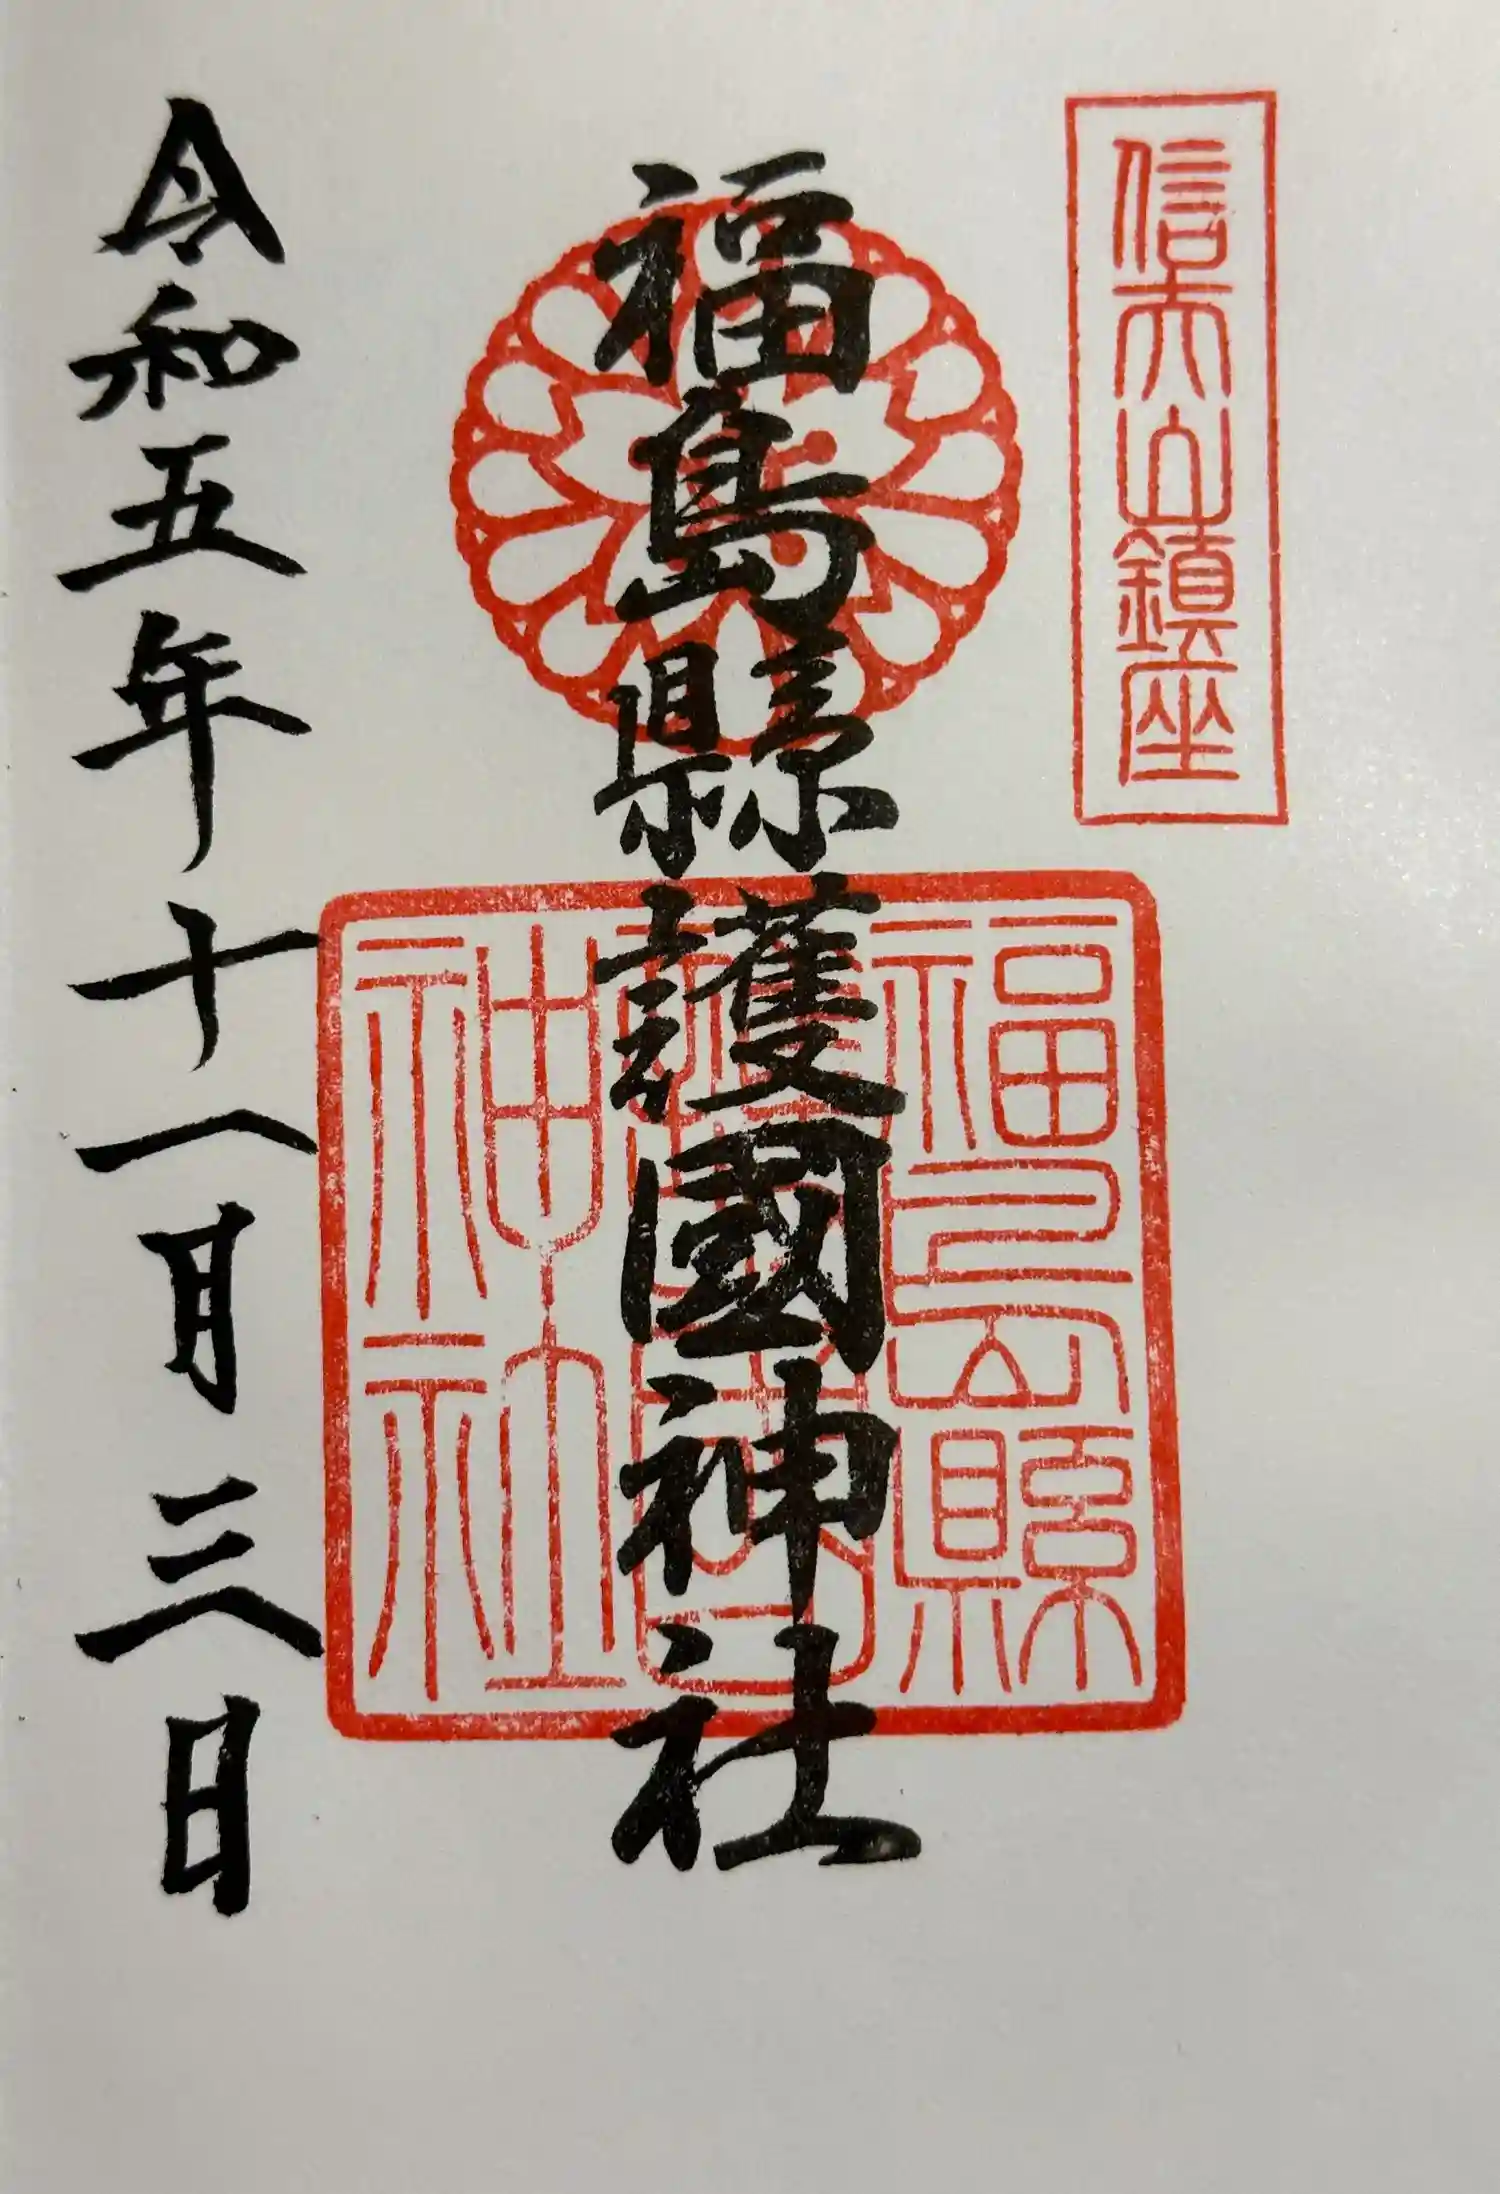 信夫山鎮座
福島縣護國神社
福島縣
護國
神社
令和五年十一月三日